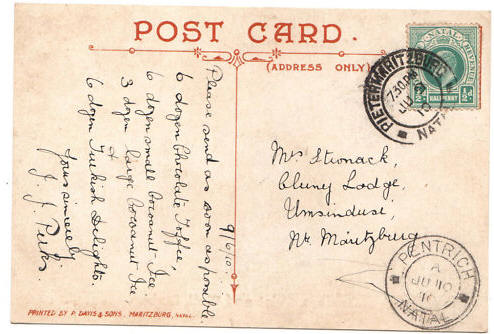 POST CARD.
(ADDRESS ONLY)
9/6/10.
Please send as soon as possible.
6 dozen Chocolate Toffee,
6 dozen small Cocoanut Ice
3 dozen large Cocoanut Ice
&
6 dozen Turkish Delights.
Yours sincerely
J. J. Perks.
NATAL REVENUE
½d
½d
HALFPENNY
PIETERMARITZBURG
7.30 PM
JU
10
NATAL
Mrs Stronack,
Cluny Lodge,
Umsindusi,
Nr. Maritzburg
PENTRICH
A
JU 10
10
NATAL
PRINTED BY P. DAVIS & SONS, MARITZBURG, NATAL.